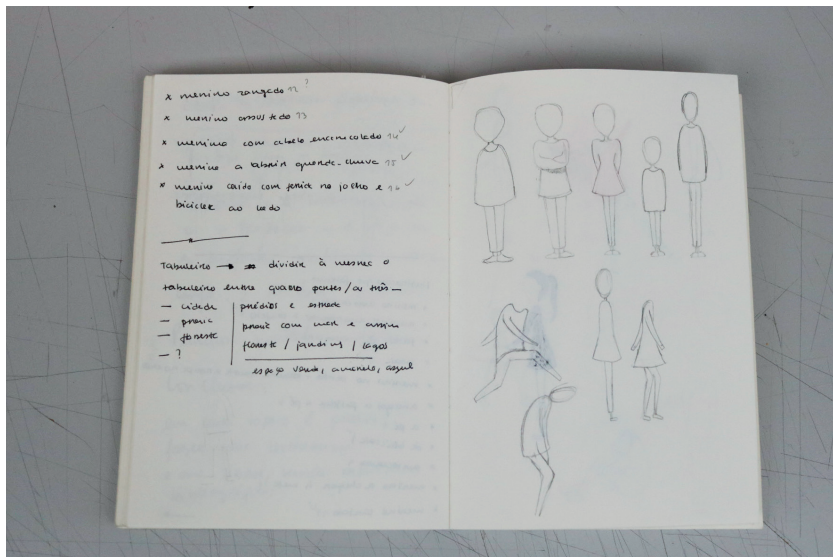 x menino zangado 12 ?
x menino assustado 13
x menino com cabelo encaracolado 14 ✓
x menino a abrir guarda-chuva 15 ✓
x menino caído com ferida no joelho e 16 ✓
bicicleta ao lado
Tabuleiro → dividir à mesma o
tabuleiro entre quatro partes/ou três —
— cidade | prédios e estrada
— praia | praia com mar e assim
— floresta | floresta / jardins / lagos
— ?
espaço verde, amarelo, azul